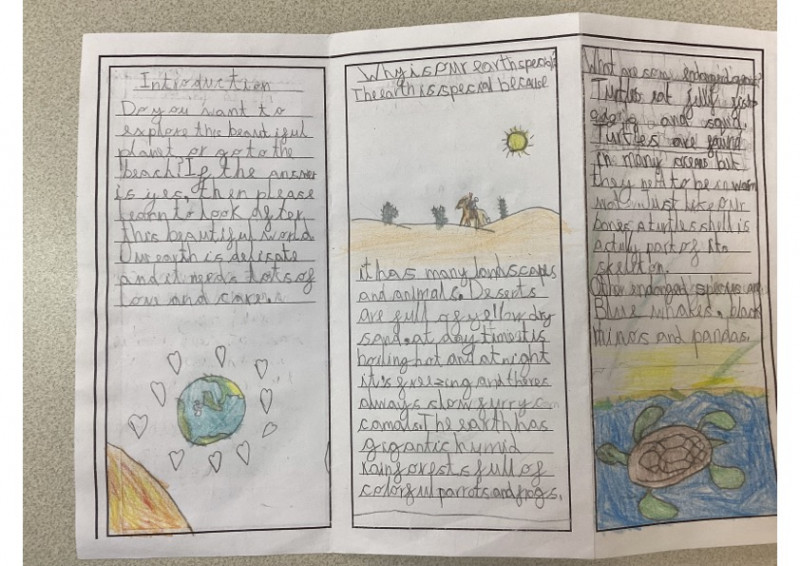 Introduction
Do you want to
explore this beautiful
planet or go to the
beach? If the answer
is yes, then please
learn to look after
this beautiful world
Our earth is delicate
and it needs lots of
love and care.
Why is our earth special?
The earth is special because
it has many landscapes
and animals. Deserts
are full of yellow dry
sand. at day time it is
boiling hot and at night
it's freezing and theres
always slow furry
camals. The earth has
gigantic humid
rainforests full of
colorful parrots and frogs.
What are some
Turtles eat jelly fish
and squid.
Turtles are found
in many oceans but
they need to be in warm
Just like our
bones a turtles shell is
part of its
skeleton.
Other species are
Blue whales, black
rhinos and pandas.